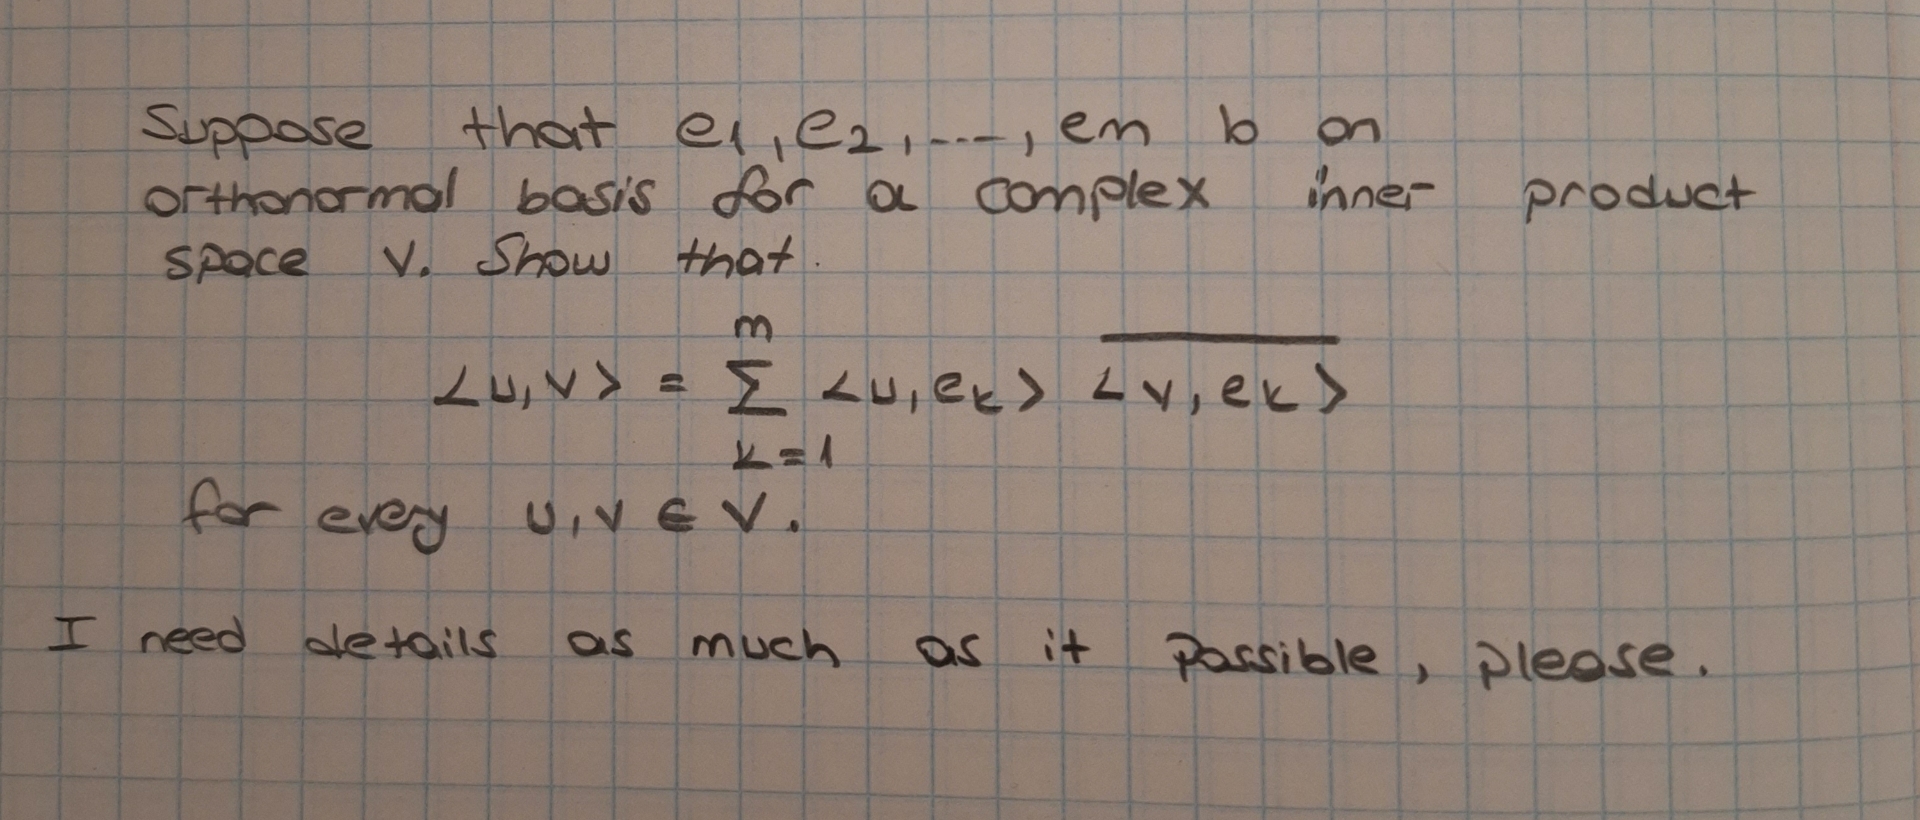 Suppose that e1, e2, ..., em b an
orthonormal basis for a complex inner product
space V. Show that.
m
<u,v> = Σ <u,ek> \overline{<v,ek>}
k=1
for every u,v ∈ V.
I need details as much as it possible, please.